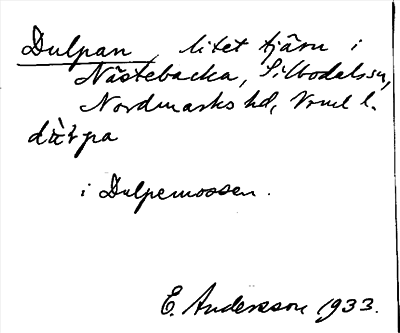 Dulpan, litet tjärn i
Nästebacka, Silbodals sn,
Nordmarks hd, Vrml l.
i Dulpemossen.
E. Andersson 1933.